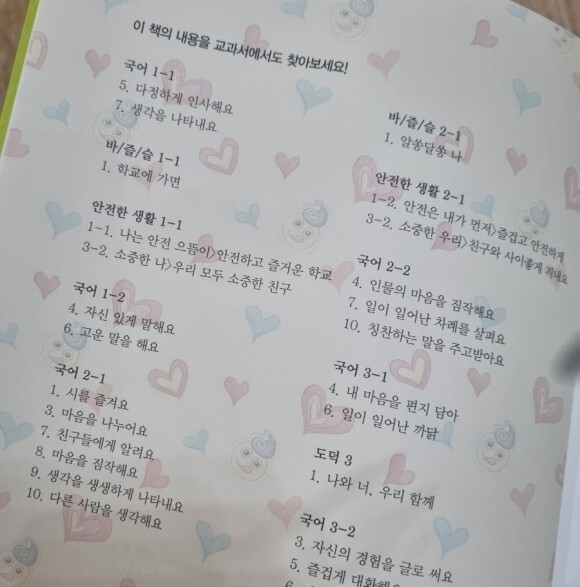 이 책의 내용을 교과서에서도 찾아보세요!
국어 1-1
5. 다정하게 인사해요
7. 생각을 나타내요
바/즐/슬 1-1
1. 학교에 가면
안전한 생활 1-1
1-1. 나는 안전 으뜸이>안전하고 즐거운 학교
3-2. 소중한 나>우리 모두 소중한 친구
국어 1-2
4. 자신 있게 말해요
6. 고운 말을 해요
국어 2-1
1. 시를 즐겨요
3. 마음을 나누어요
7. 친구들에게 알려요
8. 마음을 짐작해요
9. 생각을 생생하게 나타내요
10. 다른 사람을 생각해요
바/즐/슬 2-1
1. 알쏭달쏭 나
안전한 생활 2-1
1-2. 안전은 내가 먼저>즐겁고 안전하게
3-2. 소중한 우리>친구와 사이좋게 지내요
국어 2-2
4. 인물의 마음을 짐작해요
7. 일이 일어난 차례를 살펴요
10. 칭찬하는 말을 주고받아요
국어 3-1
4. 내 마음을 편지 담아
6. 일이 일어난 까닭
도덕 3
1. 나와 너, 우리 함께
국어 3-2
3. 자신의 경험을 글로 써요
5. 즐겁게 대화해요